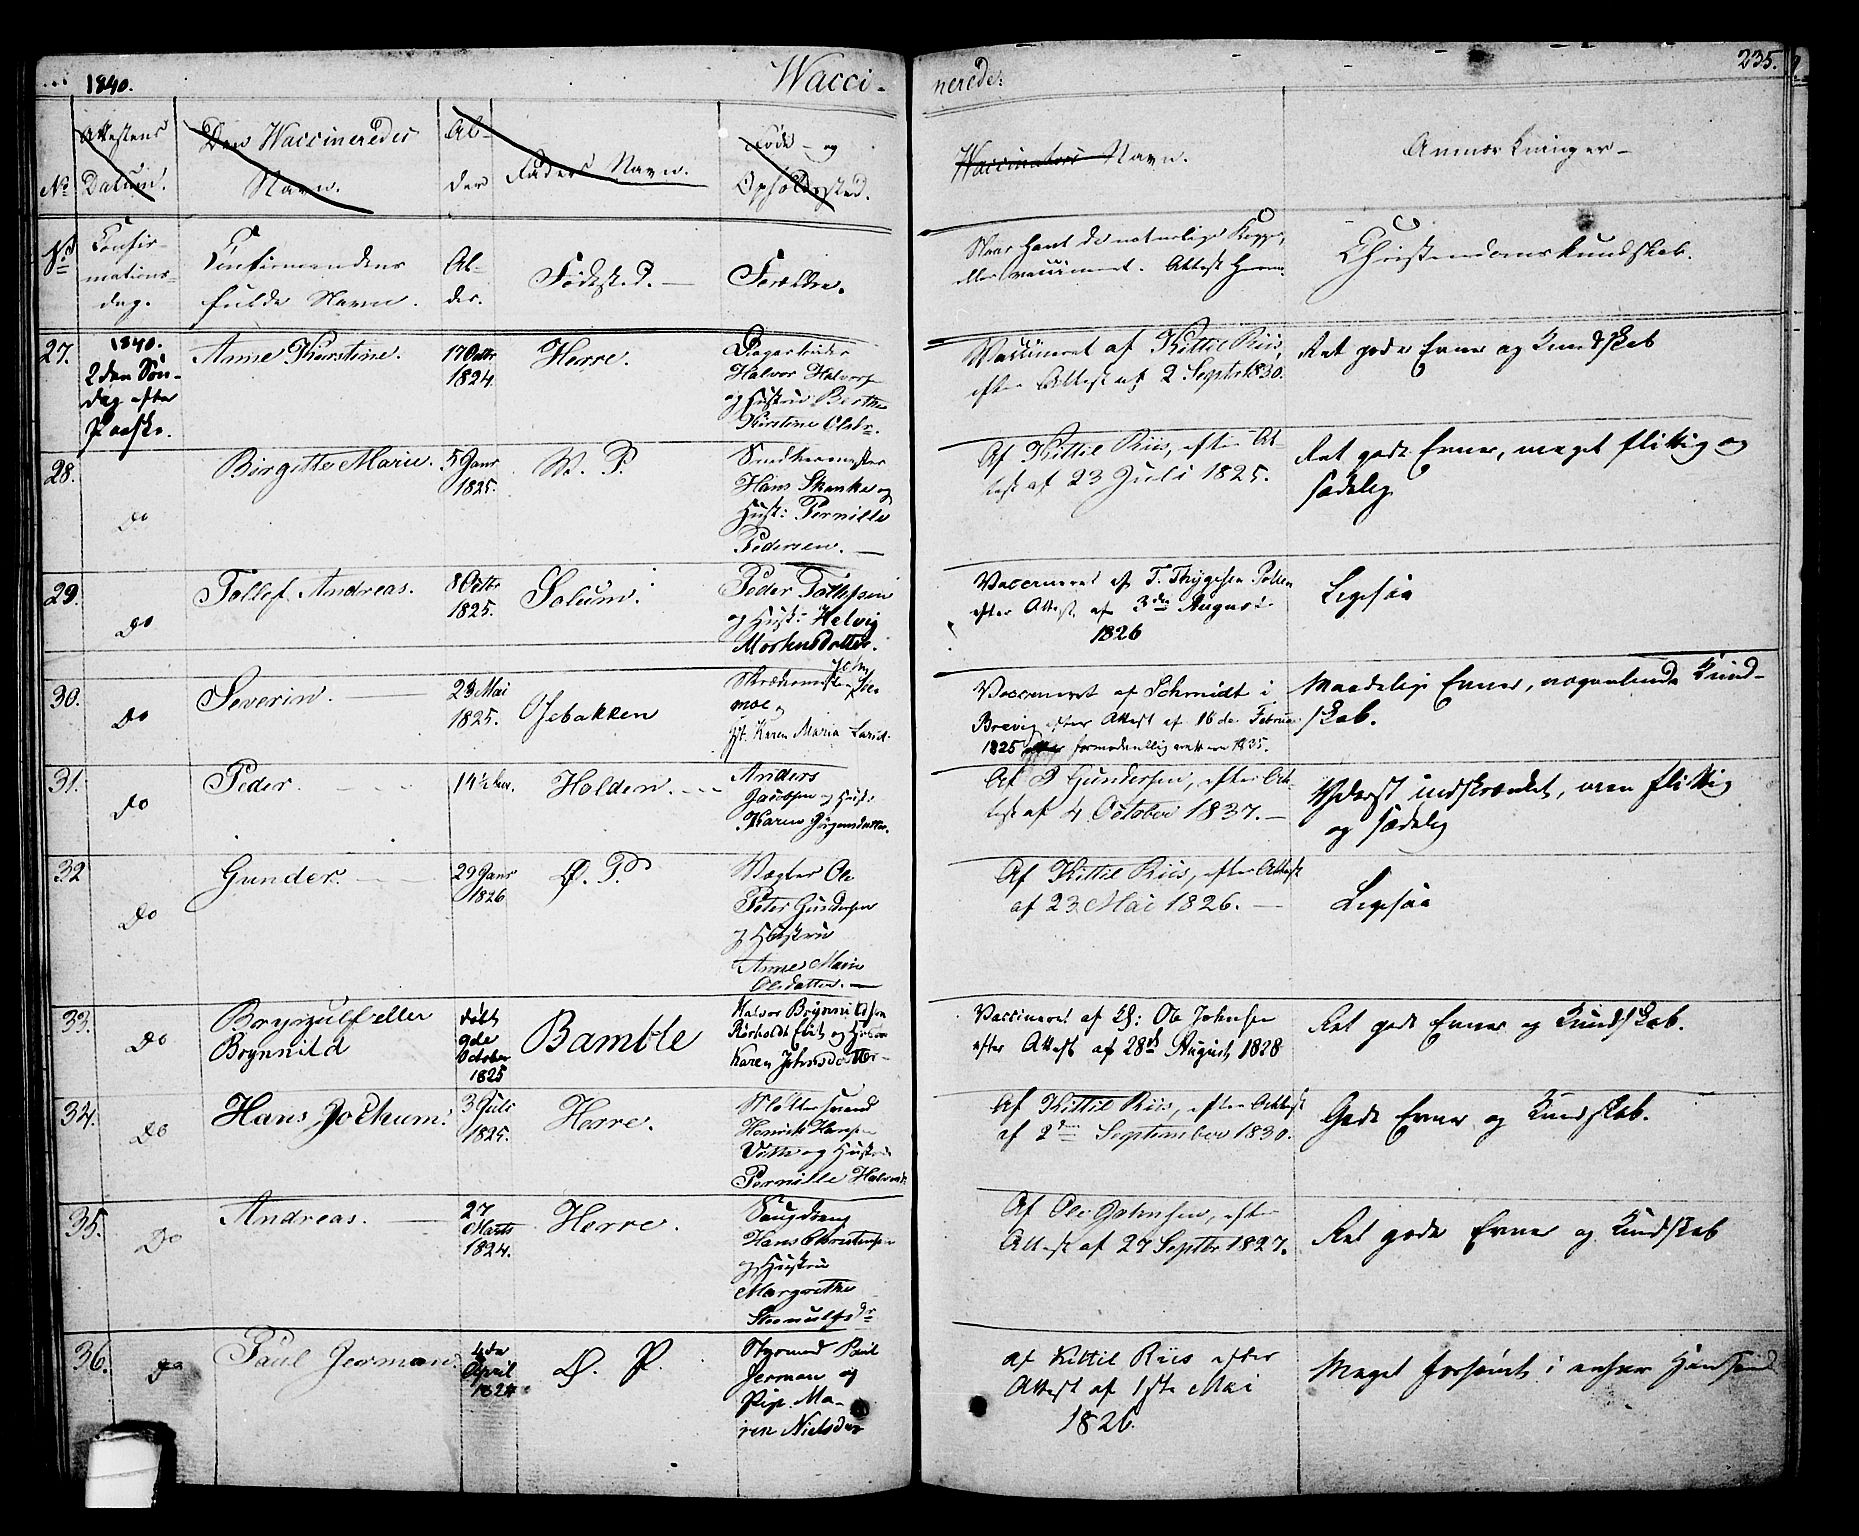 1840.
Wacci-
nerede.
235.
No
Attestens
Datum.
Den Waccineredes
Navn.
Al-
der
Faders Navn.
Føde- og
Opholdssted.
Waccinators Navn.
Anmærkninger
No
Confir-
mations-
dag.
Confirmandens
fulde Navn.
Al-
der.
Fødested.
Forældre.
eller vaccineret. Attest herom.
Christendomskundskab.
27.
1840.
2den Søn-
dag efter
Paaske.
Anne Kirstine.
17 Octbr
1824.
Herre.
Halvor Halvors
og Hustrue Berthe
Kirstine Olsdr.
Vaccineret af Kittil Riis,
efter Attest af 2 Septr 1830.
Ret gode Evner og Kundskab
28.
Do
Birgitte Marie.
5 Janr
1825.
V. P.
Hans Skanke og
Hust: Pernille
Pedersen.
Af Kittil Riis, efter At-
test af 23 Juli 1825.
Ret gode Evner, meget flittig og
sædelig
29.
Do
Tollef Andreas.
8 Octbr
1825.
Solum.
Peder Tollefsen
og Hust: Helvig
Mortensdatter.
Vaccineret af T. Thygesen
efter Attest af 3die August
1826
Ligesaa
30.
Do
Severin
23 Mai
1825.
Ojebakken
moe og
Hst. Karen Maria
Vaccineret af Schmidt i
Brevig efter Attest af 16de Februar
1825 formodentlig 1835.
Maadelige Evner, nogenlunde Kund-
skab.
31.
Do
Peder
14½ Aar.
Holden
Anders
Jacobsen og Hust:
Karen Jörgensdatter.
Af P Gundersen, efter At-
test af 4 October 1837.
Yderst indskrænket, men flittig
og sædelig
32
Do
Gunder.
29 Janr
1826
Ø. P.
Vægter Ole
Peter Gundersen
og Hustrue
Anne Marie
Olsdatter.
Af Kittil Riis, efter Attest
af 23 Mai 1826.
Ligesaa
33.
Do
Brynulf eller
Brynnild
født
9de
October
1825
Bamble
Halvor Brynnildsen
Rørholdt Eiet og Hustrue
Karen Johnsdatter
Vaccineret af Ole Johnsen
efter Attest af 28de August 1828
Ret gode Evner og Kundskab.
34.
Do
Hans Jochum.
3 Juli
1825.
Herre.
Henrik Hansen
Votte og Hustrue
Pernille Halvorsd.
Af Kittil Riis, efter Attest
af 2den September 1830.
Gode Evner og Kundskab.
35.
Do
Andreas.
27
Marts
1824.
Herre.
Saugdreng
Hans Christensen
og Hustrue
Margrethe
Steenulfsdr
Af Ole Johnsen, efter
Attest af 27 Septbr 1827.
Ret gode Evner og Kundskab
36.
Do
Paul Jerman
4de
April
1824
Ø. P.
Styrmand Paul
Jerman og
Pige Ma-
ren Nielsdr
af Kittil Riis efter
Attest af 1ste Mai
1826.
Meget forsømt i enhver Henseende